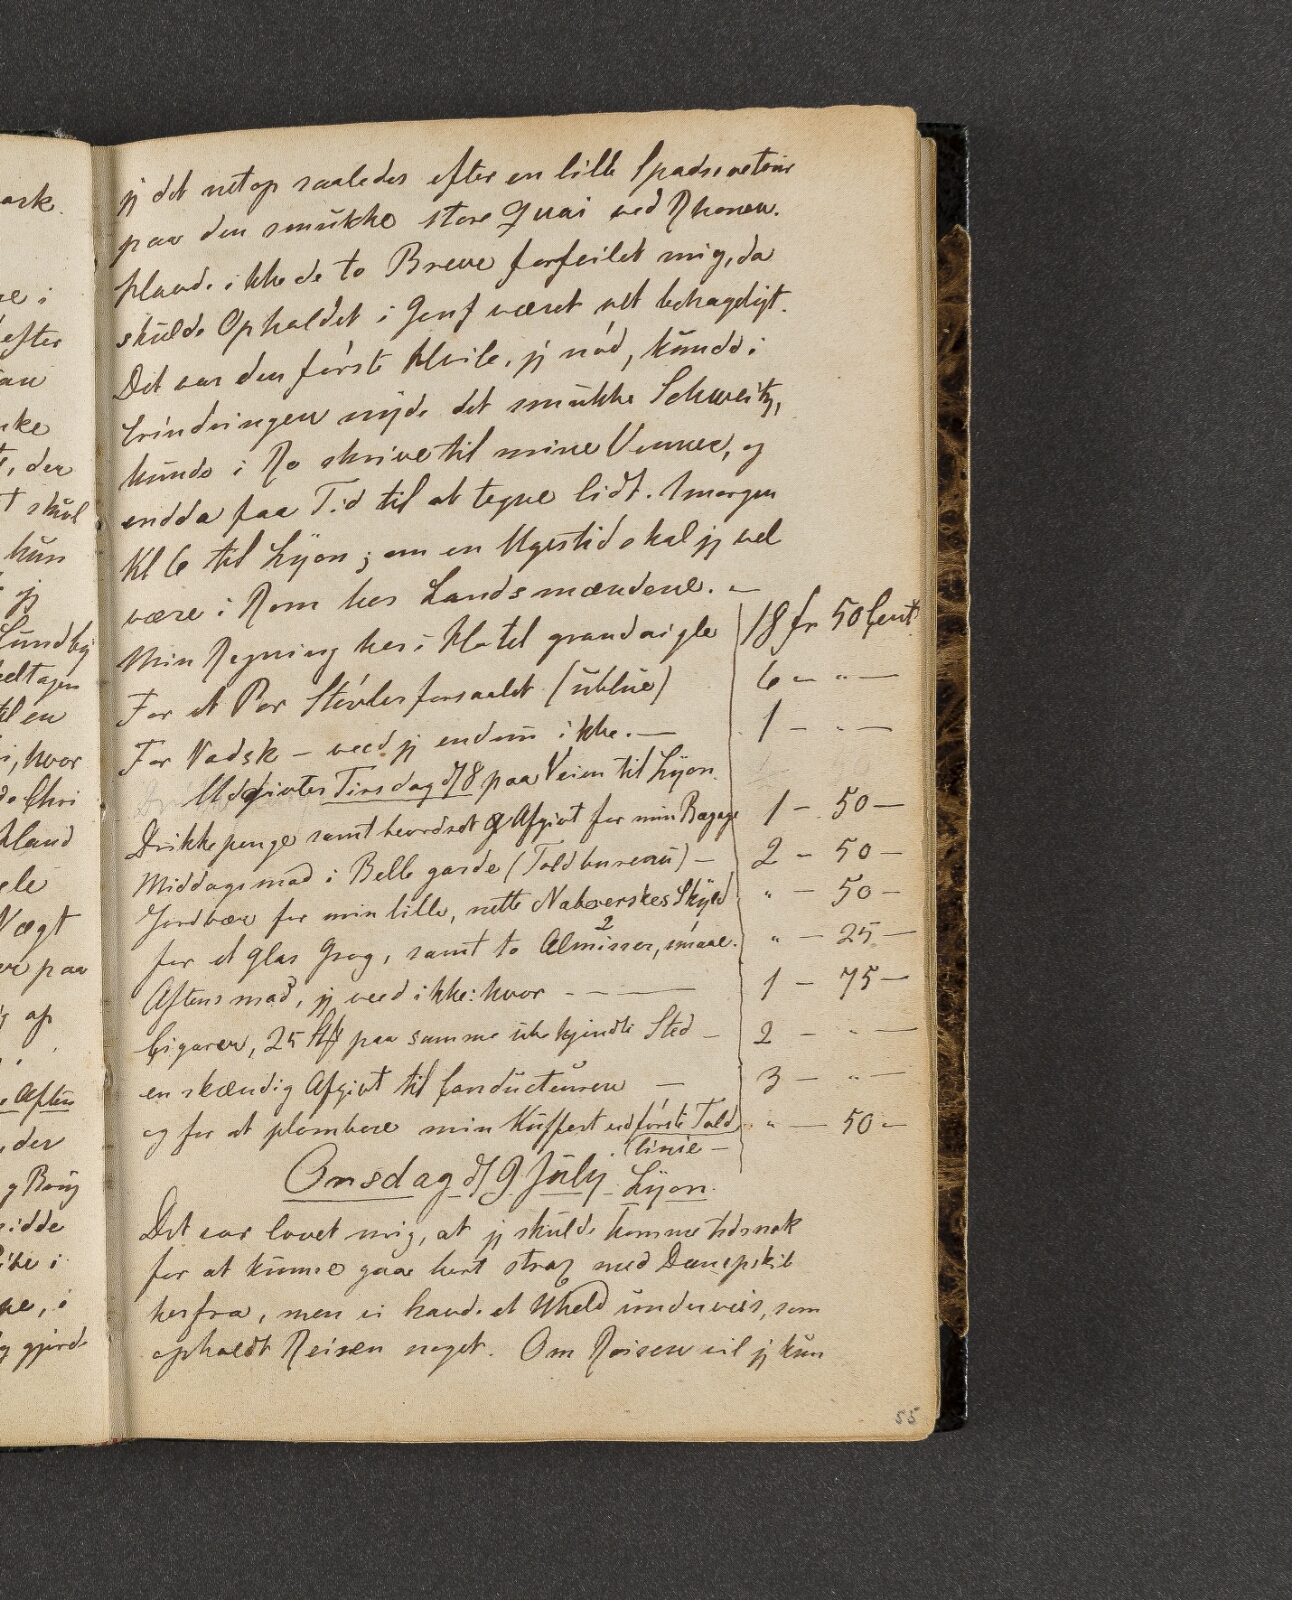 jeg det netop saaledes efter en lille Spadseretour
paa den smukke store Quai ved Rhonen.
Havde ikke de to Breve forfeilet mig, da
skulde Opholdet i Genf været ret behageligt.
Det var den første Hvile, jeg nød, kunde i
Erindringen nyde det smukke Schweitz,
kunde i Ro skrive til mine Venner, og
endda faa Tid til at tegne lidt. Imorgen
Kl 6 til Lyon; om en Ugestid skal jeg vel
være i Rom hos Landsmændene. –
Min Regning her i Hotel grand aigle | 18 fr 50 Cent.
For et Par Støvler forsaalet (üblüe) | 6 – " –
For Vadsk – veed jeg endnu ikke. – | 1 – " –
Udgivter Tirsdag d/8 paa Veien til Lyon.
Drikkepenge samt Afgivt for min Bagage | 1 – 50 –
Middagsmad i Bellegarde (Toldbureau) – | 2 – 50 –
Jordbær for min lille, nette Naboerskes Skyld | " – 50 –
for et Glas Grog, samt to 2 Almisser, smaae. | " – 25 –
Aftensmad, jeg veed ikke: hvor – – – | 1 – 75 –
Cigarer, 25 Stk paa samme ubekjendte Sted – | 2 – " –
en skændig Afgivt til Conducteuren – | 3 – " –
og for at plombere min Kuffert ved første Told | " – 50 –
linie –
Onsdag d/9 July. Lyon.
Det var lovet mig, at jeg skulde komme tidsnok
for at kunne gaae bort strax med Dampskib
herfra, men vi havde et Uheld underveis, som
opholdt Reisen noget. Om Reisen vil jeg kun
55
ark.
efter
den
skul
kun
jeg
Lundby
deltagen
til en
hvor
Vægt
paa
op
Aften
der
gjorde